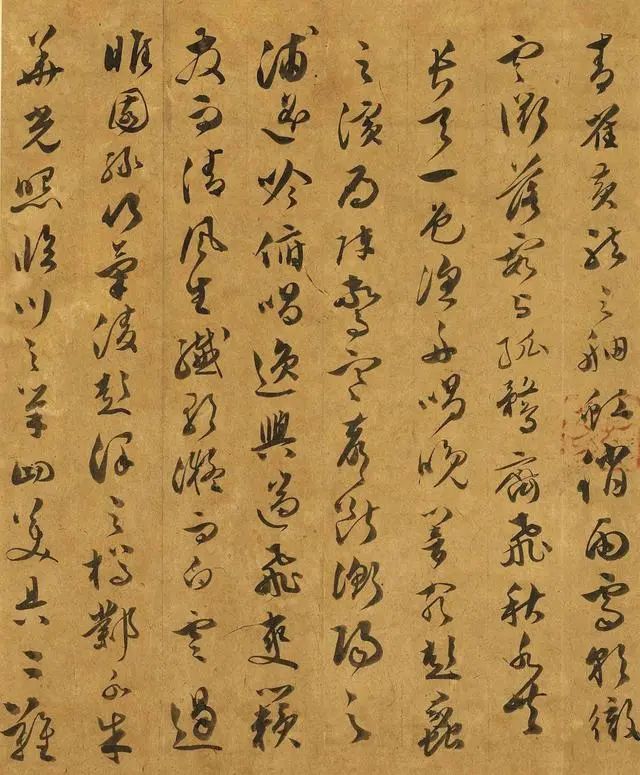 青雀黄龍之舳虹銷雨霽彩徹
雲衢落霞与孤鶩齊飛秋水共
長天一色漁舟唱晚響窮彭蠡
之濱雁陣驚寒聲斷衡陽之
浦遥吟俯唱逸興遄飛爽籟
發而清風生纖歌凝而白雲遏
睢園綠竹氣凌彭澤之樽鄴水朱
華光照臨川之筆四美具二難